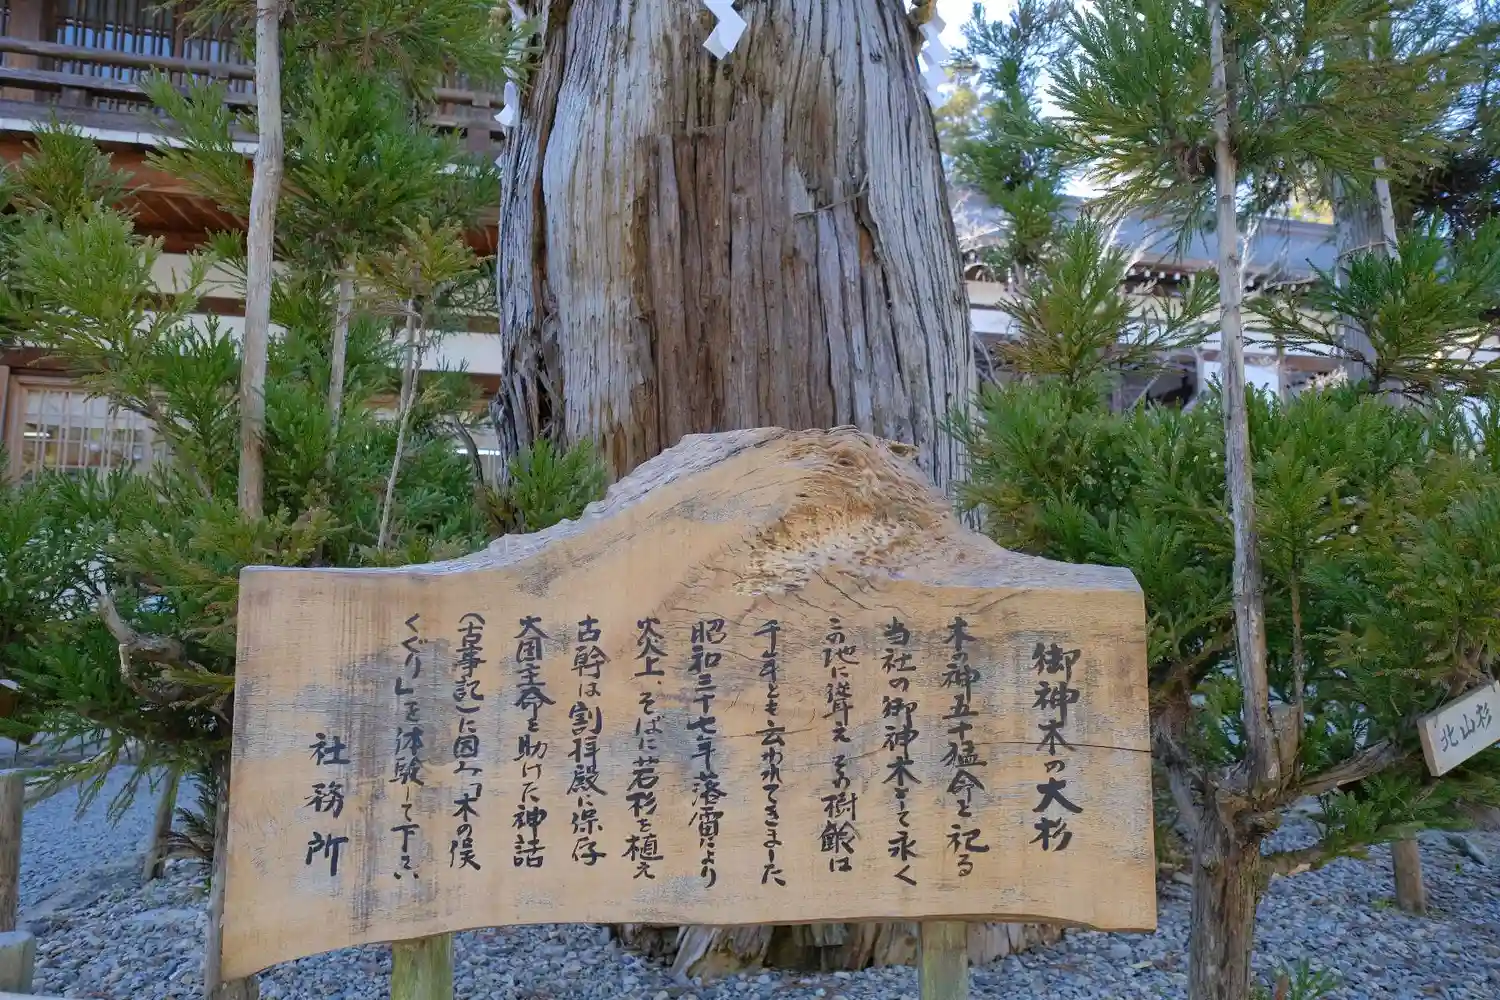 御神木の大杉
木の神五十猛命を祀る
当社の御神木として永く
この地に聳えその樹齢は
千年とも云われてきました
昭和三十七年落雷により
炎上、そばに若杉を植え
古幹は割拝殿に保存
大国主命を助けた神話
(古事記)に因み「木の俣
くぐり」を体験して下さい
社務所
北山杉